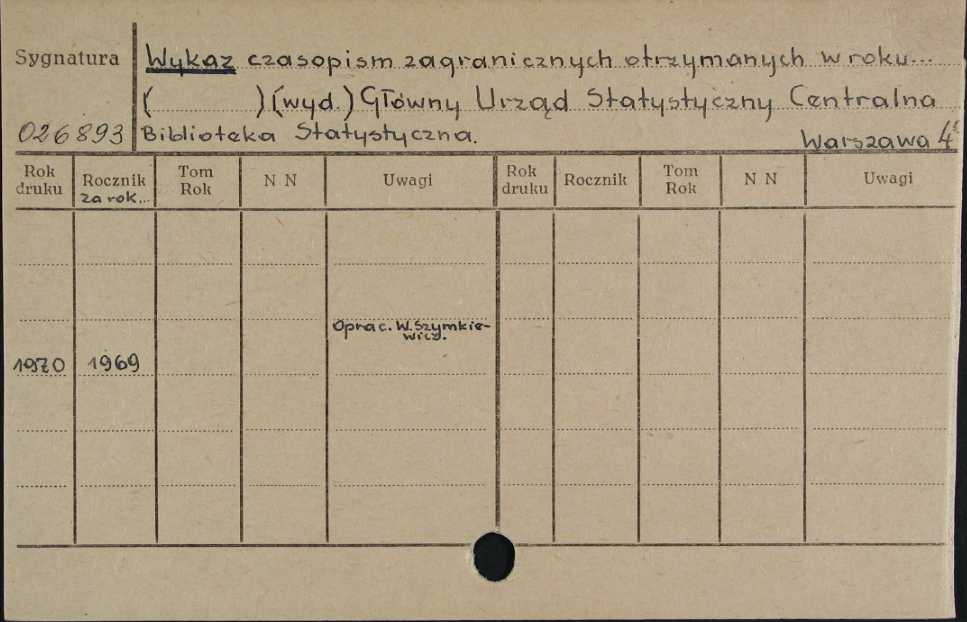 Sygnatura
Wykaz czasopism zagranicznych otrzymanych w roku...
( )(wyd.) Główny Urząd Statystyczny Centralna
026893 Biblioteka Statystyczna. Warszawa 4°
Rok druku Rocznik za rok... Tom Rok N N Uwagi Rok druku Rocznik Tom Rok N N Uwagi
Oprac. W. Szymkie-
wicz.
1970 1969